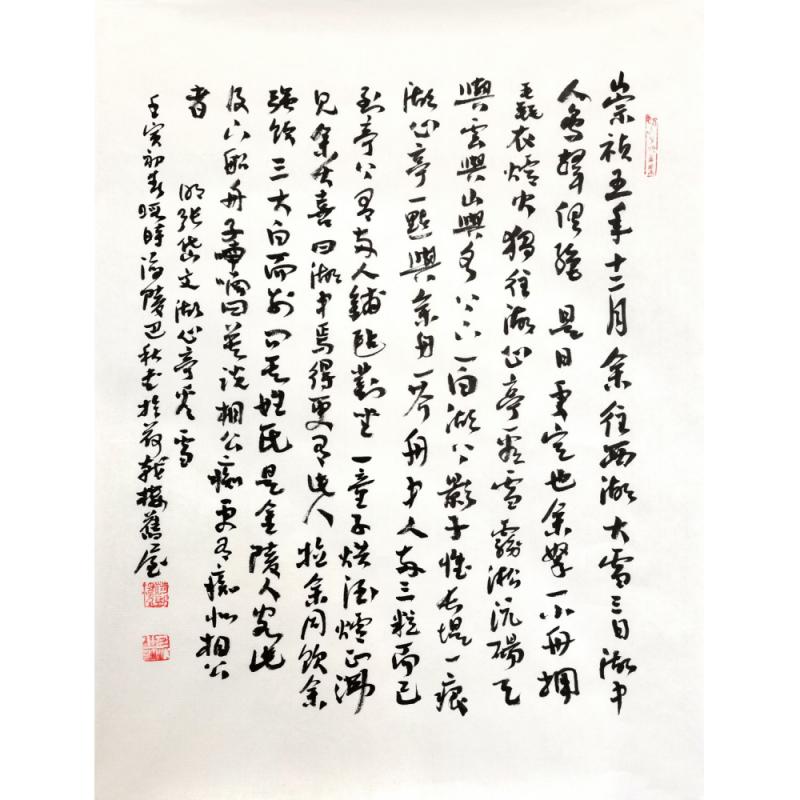 崇禎五年十二月余住西湖大雪三日湖中
人鳥聲俱絕是日更定也余拏一小舟擁
毳衣爐火獨往湖心亭看雪霧淞沆碭天
與雲與山與水上下一白湖上影子惟長堤一痕
湖心亭一點與余舟一芥舟中人兩三粒而已
到亭上有兩人鋪氈對坐一童子燒酒爐正沸
見余大喜曰湖中焉得更有此人拉余同飲余
強飲三大白而別問其姓氏是金陵人客此
及下船舟子喃喃曰莫說相公痴更有痴似相公
者 明張岱文湖心亭看雪
壬寅初春暖時涪陵巴秋書於荷樓舊屋